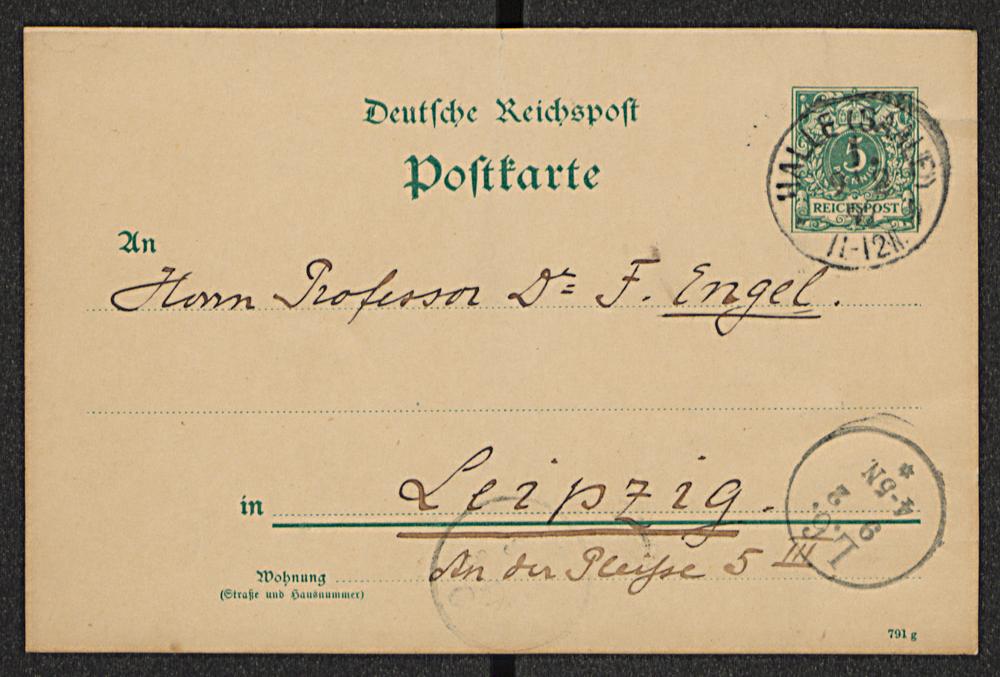 Deutsche Reichspost
Postkarte
HALLE (SAALE)
5
REICHSPOST
11-12V.
An
Herrn Professor Dr= F. Engel.
4-5N
in Leipzig.
Wohnung An der Pleiße 5 III
(Straße und Hausnummer)
791 g